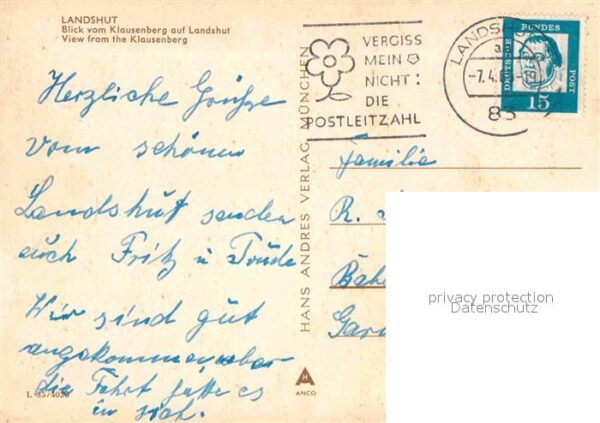 LANDSHUT
Blick vom Klausenberg auf Landshut
View from the Klausenberg
Herzliche Grüße
vom schönen
Landshut senden
euch Fritz u Trude
Wir sind gut
angekommen, aber
die Fahrt hatte es
in sich.
L 35/4028
HANS ANDRES VERLAG, MÜNCHEN
ANCO
VERGISS
MEIN
NICHT:
DIE
POSTLEITZAHL
LANDSHUT
-7.4.6
83
DEUTSCHE BUNDESPOST
15
Familie
R.
privacy protection
Datenschutz